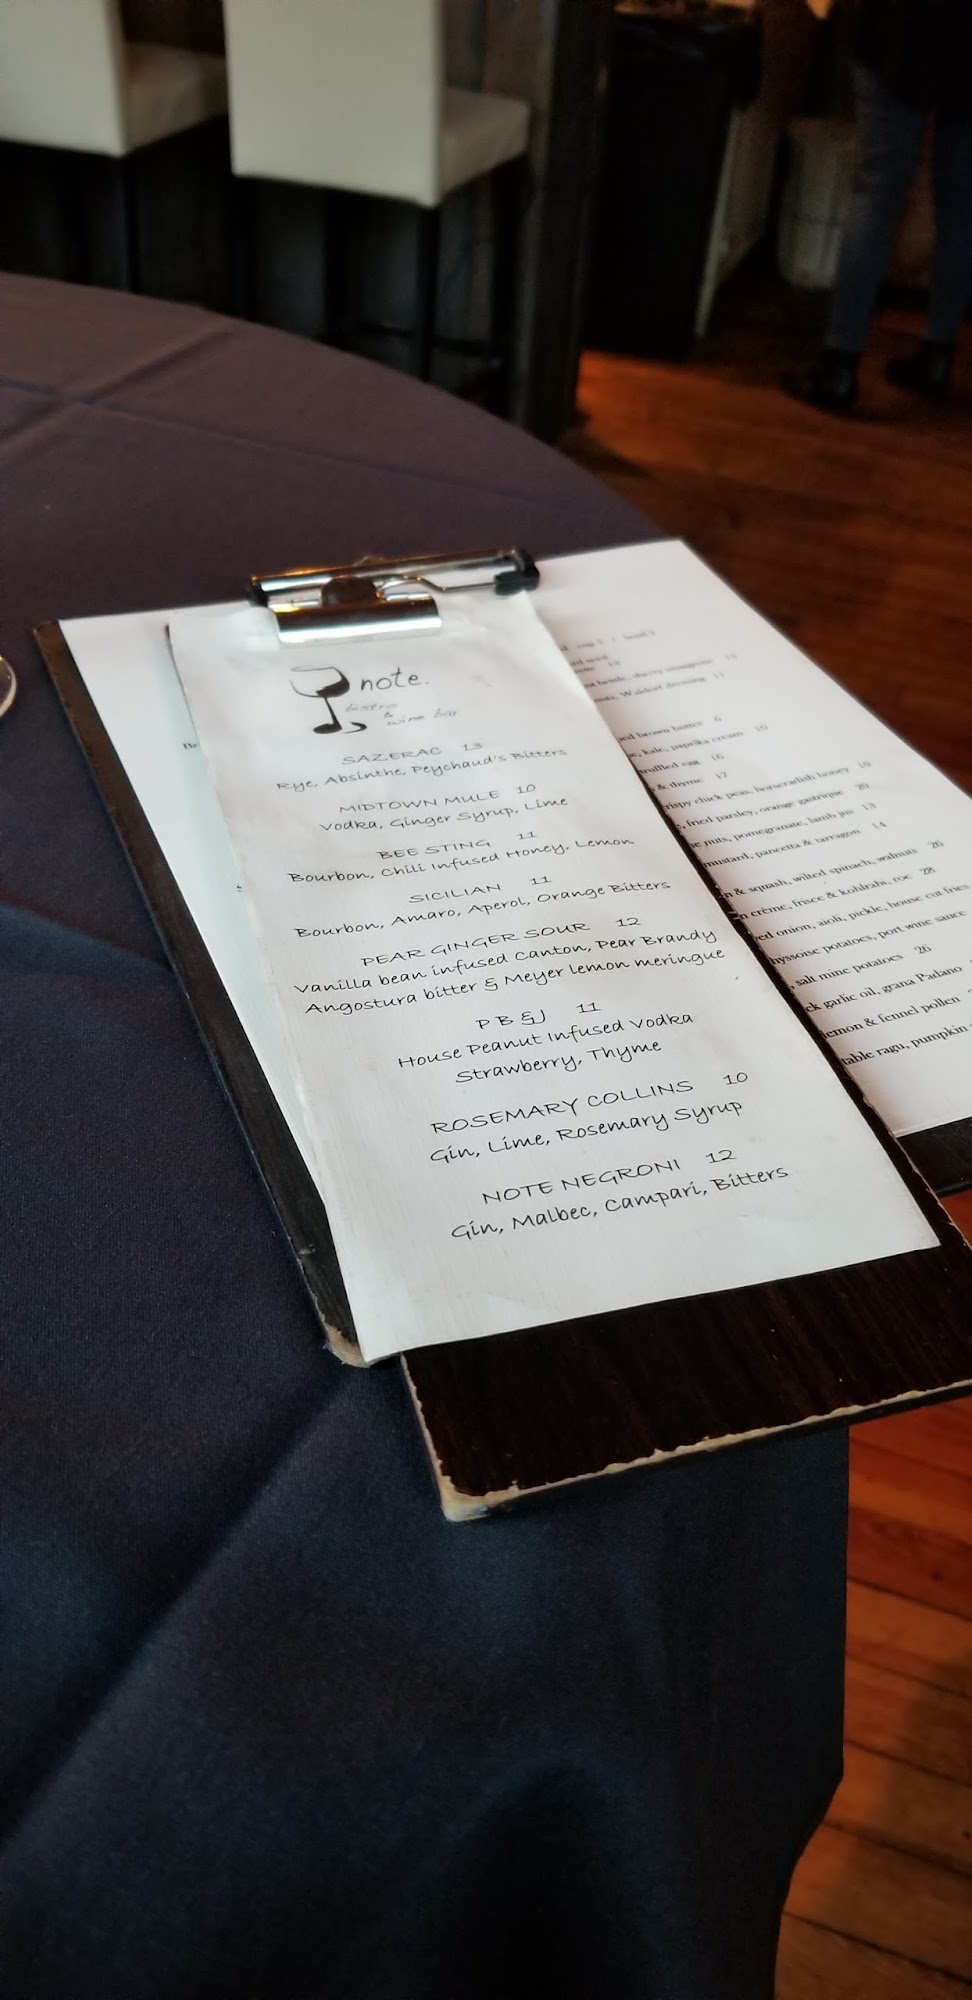 note.
bistro
&
wine bar
SAZERAC 13
Rye, Absinthe, Peychaud's Bitters
MIDTOWN MULE 10
Vodka, Ginger Syrup, Lime
BEE STING 11
Bourbon, Chili Infused Honey, Lemon
SICILIAN 11
Bourbon, Amaro, Aperol, Orange Bitters
PEAR GINGER SOUR 12
Vanilla bean infused Canton, Pear Brandy
Angostura bitter & Meyer lemon meringue
P B & J 11
House Peanut Infused Vodka
Strawberry, Thyme
ROSEMARY COLLINS 10
Gin, Lime, Rosemary Syrup
NOTE NEGRONI 12
Gin, Malbec, Campari, Bitters
brittle, sherry vinaigrette
nuts, Waldorf dressing
brown butter 6
kale, paprika cream 10
truffled egg 16
& thyme 17
crispy chick peas, horseradish honey
fried parsley, orange gastrique 20
nuts, pomegranate, lamb jus 13
mustard, pancetta & tarragon 14
& squash, wilted spinach, walnuts 26
crème, frisee & kohlrabi, roe 28
onion, aioli, pickle, house cut fries
potatoes, port wine sauce
salt mine potatoes 26
garlic oil, grana Padano
lemon & fennel pollen
ragu, pumpkin